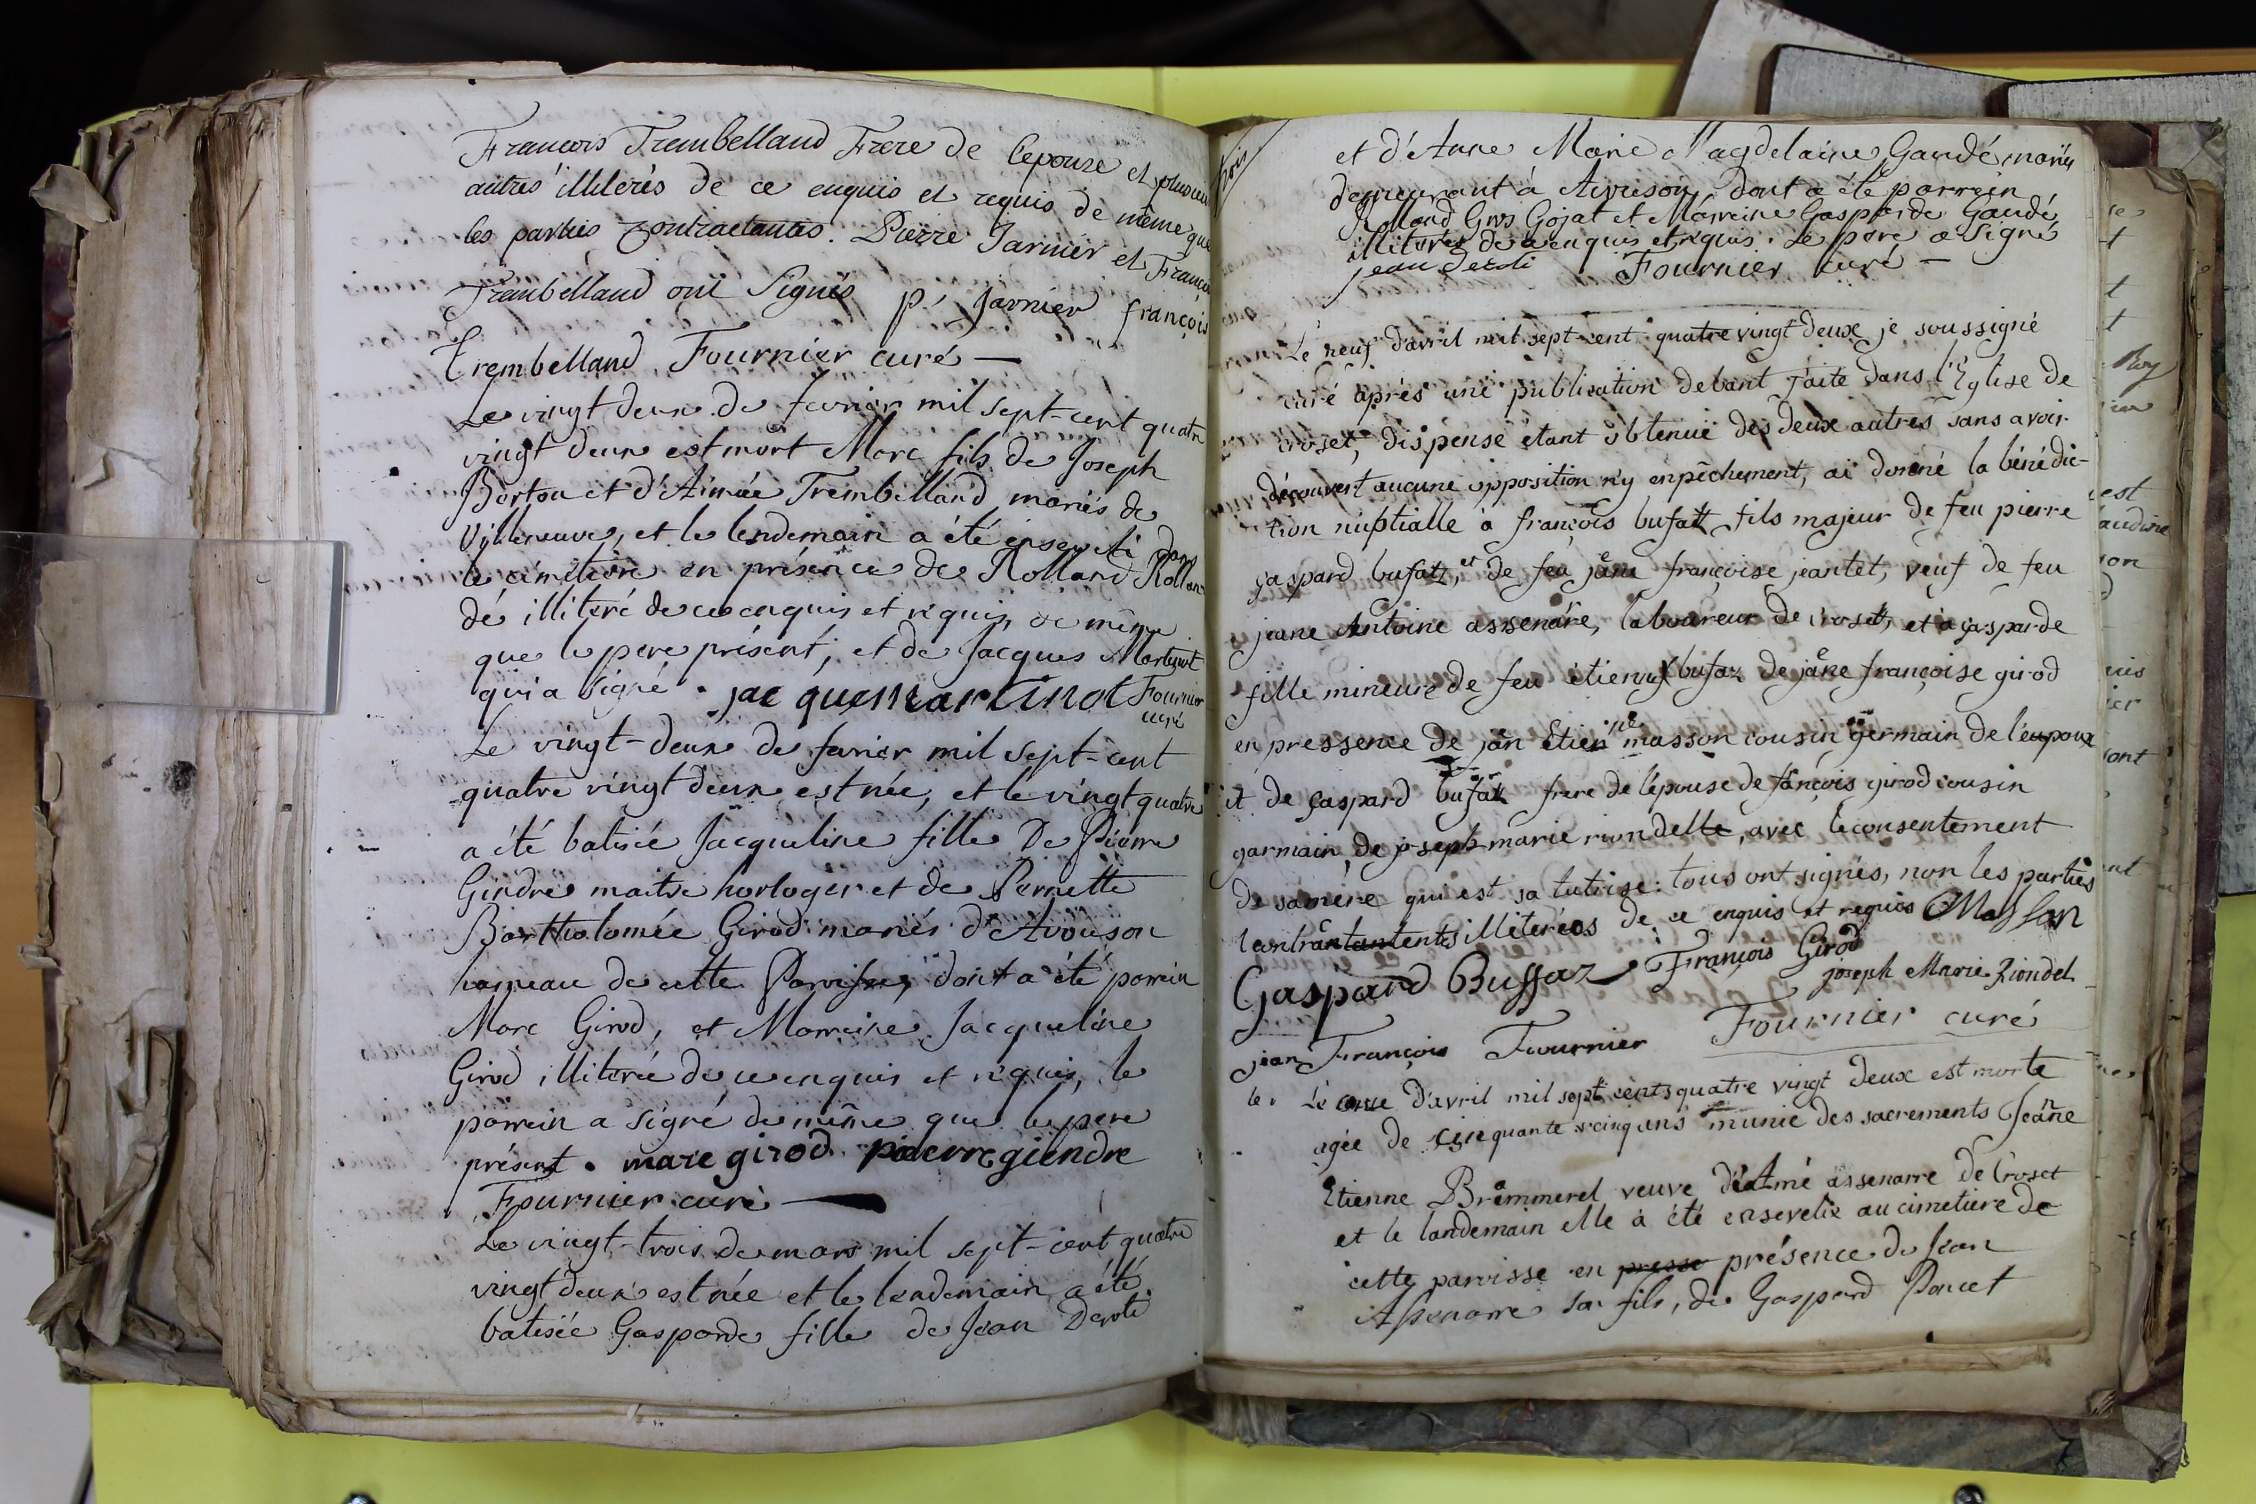 François Trembelland Frere de l'epouse et plusieurs
autres illiterés de ce enquis et requis de même que
les parties contractantes. Pierre Jarnier et François
Trembelland ont Signés p. garnier françois
trembelland Fournier curé
Le vingt deux de fevrier mil sept-cent quatre
vingt deux est mort Marc fils de Joseph
Borton et d'Aimée Trembelland mariés de
Villeneuve, et le lendemain a été enseveli dans
le cimetiere en présence de Rolland Rollan-
dé illiteré de ce enquis et requis, de même
que le pere présent, et de Jacques Martinot
qui a signé. jac ques martinot Fournier
curé
Le vingt-deux de fevrier mil sept-cent
quatre vingt deux est née, et le vingt quatre
a été batisée Jacqueline fille De Pierre
Gindre maitre horloger et de Pernette
Bartholomée Girod mariés d'Avouson
hameau de cette Paroisse, dont a été parrein
Marc Girod, et Marreine Jacqueline
Girod illiterée de ce enquis et requis, le
parrein a signé de même que le pere
présent. marc girod pierre giendre
Fournier curé
Le vingt-trois de mars mil sept-cent quatre
vingt deux est née et le lendemain a été
batisée Gasparde fille de Jean Deroli
et d'Anne Marie Magdelaine Gandé mariés
demeurant à Avouson, dont a été parrein
Rolland Gros Gojat et Marreine Gasparde Gandé
illiterés de ce enquis et requis. Le pere a Signé
jean deroli Fournier curé
Le neuf d'avril mil sept-cent quatre vingt deux je soussigné
curé après une publication debant faite dans l'Eglise de
croset, dispense étant obtenue des deux autres sans avoir
découvert aucune opposition n'y enpêchement, ai donné la bénédic-
tion nuptialle à françois bufatz fils majeur de feu pierre
gaspard bufatz, et de feu jane françoise jeantet, veuf de feu
jeane Antoine assenare, laboureur de croset, et à gasparde
fille mineure de feu étienne bufaz de jane françoise girod
en pressence de jan Etienne masson cousin germain de l'eupoux
et de gaspard bufatz frere de l'épouse de fançois girod cousin
garmain, de joseph marie riondelle, avec le consentement
de sa mere qui est sa tutrise: tous ont signés, non les parties
contrantantents illiterées de ce enquis et requies Masson
Gaspard Buffaz François Girod
joseph Marie Riondel
jean François Fournier Fournier curé
le. Le onze d'avril mil sept cents quatre vingt deux est morte
agée de cinquante cinq ans munie des sacrements Jeanne
Etienne Brommerel veuve d'Aimé assenarre de Croset
et le landemain elle à été ensevelie au cimetiere de
cette paroisse en presse présence de Jean
Assenarre son fils, de Gaspard Poncet